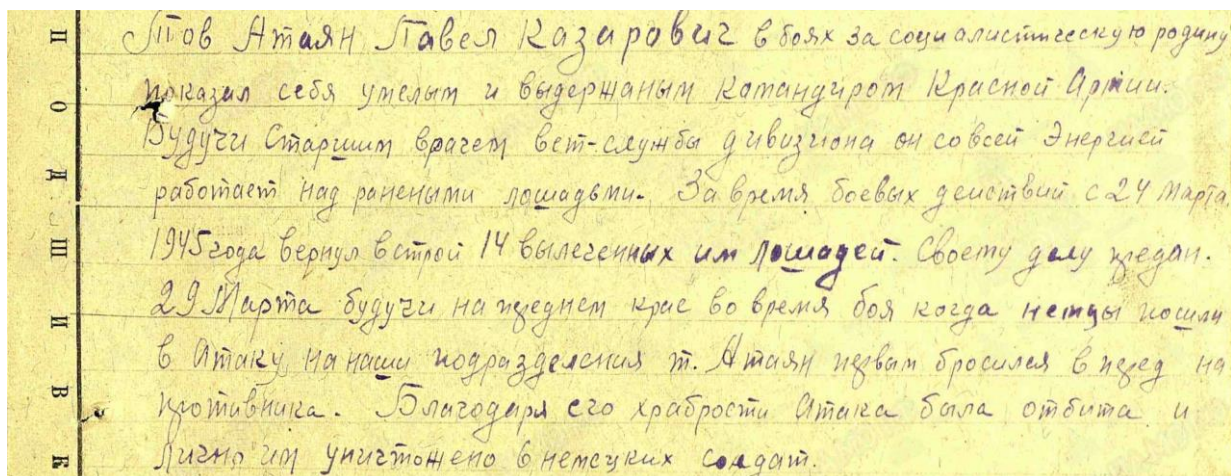 Тов Атаян Павел Казарович в боях за социалистическую родину
показал себя умелым и выдержаным командиром Красной Армии.
Будучи Старшим врачем вет-службы дивизиона он со всей Энергией
работает над ранеными лошадьми. За время боевых действий с 24 Марта
1945 года вернул в строй 14 вылеченных им лошадей. Своему делу предан.
29 Марта будучи на переднем крае во время боя когда немцы пошли
в Атаку на наши подразделения т. Атаян первым бросился в перед на
противника. Благодаря его храбрости Атака была отбита и
лично им уничтожено 6 немецких солдат.
П
О
Д
Ш
И
В
К